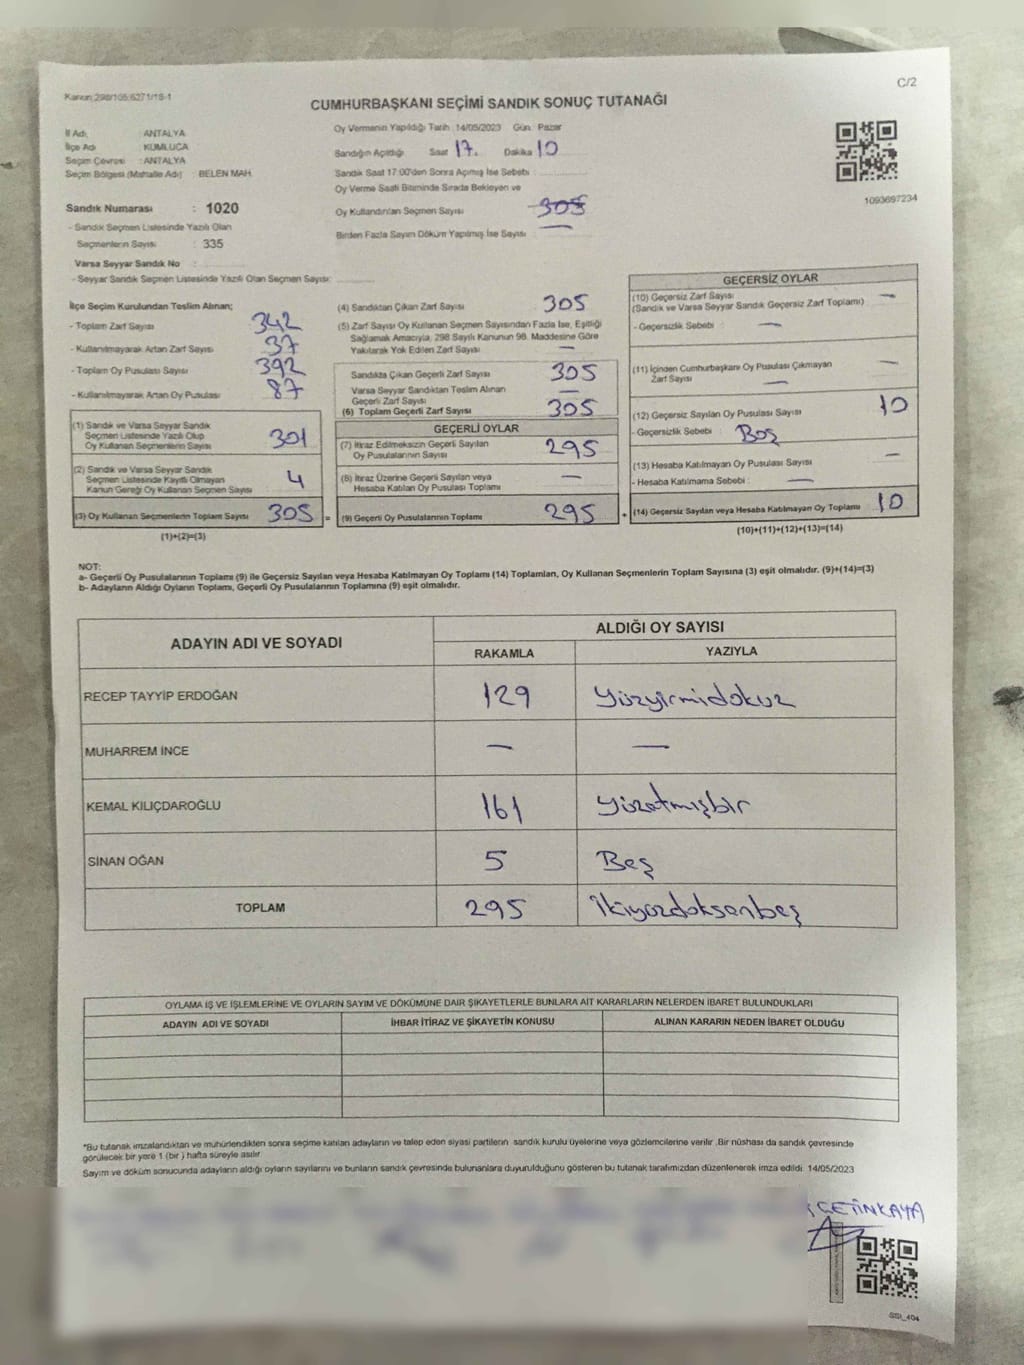 C/2
Kanun:298/105;6271/18-1
CUMHURBAŞKANI SEÇİMİ SANDIK SONUÇ TUTANAĞI
İl Adı : ANTALYA
İlçe Adı : KUMLUCA
Seçim Çevresi : ANTALYA
Seçim Bölgesi (Mahalle Adı) : BELEN MAH.
Sandık Numarası : 1020
- Sandık Seçmen Listesinde Yazılı Olan
Seçmenlerin Sayısı : 335
Varsa Seyyar Sandık No :
- Seyyar Sandık Seçmen Listesinde Yazılı Olan Seçmen Sayısı:
Oy Vermenin Yapıldığı Tarih :14/05/2023 Gün: Pazar
Sandığın Açıldığı Saat 17. Dakika 10
Sandık Saat 17:00'den Sonra Açılmış İse Sebebi :
Oy Verme Saati Bitiminde Sırada Bekleyen ve
Oy Kullandırılan Seçmen Sayısı 305
Birden Fazla Sayım Döküm Yapılmış İse Sayısı : —
1093697234
İlçe Seçim Kurulundan Teslim Alınan;
- Toplam Zarf Sayısı 342
- Kullanılmayarak Artan Zarf Sayısı 37
- Toplam Oy Pusulası Sayısı 392
- Kullanılmayarak Artan Oy Pusulası 87
(1) Sandık ve Varsa Seyyar Sandık
Seçmen Listesinde Yazılı Olup
Oy Kullanan Seçmenlerin Sayısı 301
(2) Sandık ve Varsa Seyyar Sandık
Seçmen Listesinde Kayıtlı Olmayan
Kanun Gereği Oy Kullanan Seçmen Sayısı 4
(3) Oy Kullanan Seçmenlerin Toplam Sayısı 305 =
(1)+(2)=(3)
(4) Sandıktan Çıkan Zarf Sayısı 305
(5) Zarf Sayısı Oy Kullanan Seçmen Sayısından Fazla İse, Eşitliği
Sağlamak Amacıyla, 298 Sayılı Kanunun 98. Maddesine Göre
Yakılarak Yok Edilen Zarf Sayısı —
Sandıkta Çıkan Geçerli Zarf Sayısı 305
Varsa Seyyar Sandıktan Teslim Alınan
Geçerli Zarf Sayısı —
(6) Toplam Geçerli Zarf Sayısı 305
GEÇERLİ OYLAR
(7) İtiraz Edilmeksizin Geçerli Sayılan
Oy Pusulalarının Sayısı 295
(8) İtiraz Üzerine Geçerli Sayılan veya
Hesaba Katılan Oy Pusulası Toplamı —
(9) Geçerli Oy Pusulalarının Toplamı 295 +
GEÇERSİZ OYLAR
(10) Geçersiz Zarf Sayısı —
(Sandık ve Varsa Seyyar Sandık Geçersiz Zarf Toplamı)
- Geçersizlik Sebebi : —
(11) İçinden Cumhurbaşkanı Oy Pusulası Çıkmayan —
Zarf Sayısı —
(12) Geçersiz Sayılan Oy Pusulası Sayısı 10
- Geçersizlik Sebebi : Boş
(13) Hesaba Katılmayan Oy Pusulası Sayısı —
- Hesaba Katılmama Sebebi : —
(14) Geçersiz Sayılan veya Hesaba Katılmayan Oy Toplamı 10
(10)+(11)+(12)+(13)=(14)
NOT:
a- Geçerli Oy Pusulalarının Toplamı (9) ile Geçersiz Sayılan veya Hesaba Katılmayan Oy Toplamı (14) Toplamları, Oy Kullanan Seçmenlerin Toplam Sayısına (3) eşit olmalıdır. (9)+(14)=(3)
b- Adayların Aldığı Oyların Toplamı, Geçerli Oy Pusulalarının Toplamına (9) eşit olmalıdır.
ADAYIN ADI VE SOYADI ALDIĞI OY SAYISI
RAKAMLA YAZIYLA
RECEP TAYYİP ERDOĞAN 129 Yüzyirmidokuz
MUHARREM İNCE — —
KEMAL KILIÇDAROĞLU 161 Yüzatmışbir
SİNAN OĞAN 5 Beş
TOPLAM 295 İkiyüzdoksanbeş
OYLAMA İŞ VE İŞLEMLERİNE VE OYLARIN SAYIM VE DÖKÜMÜNE DAİR ŞİKAYETLERLE BUNLARA AİT KARARLARIN NELERDEN İBARET BULUNDUKLARI
ADAYIN ADI VE SOYADI İHBAR İTİRAZ VE ŞİKAYETİN KONUSU ALINAN KARARIN NEDEN İBARET OLDUĞU
*Bu tutanak imzalandıktan ve mühürlendikten sonra seçime katılan adayların ve talep eden siyasi partilerin sandık kurulu üyelerine veya gözlemcilerine verilir .Bir nüshası da sandık çevresinde
görülecek bir yere 1 (bir ) hafta süreyle asılır.
Sayım ve döküm sonucunda adayların aldığı oyların sayılarını ve bunların sandık çevresinde bulunanlara duyurulduğunu gösteren bu tutanak tarafımızdan düzenlenerek imza edildi. 14/05/2023
ÇETİNKAYA
SSI_404